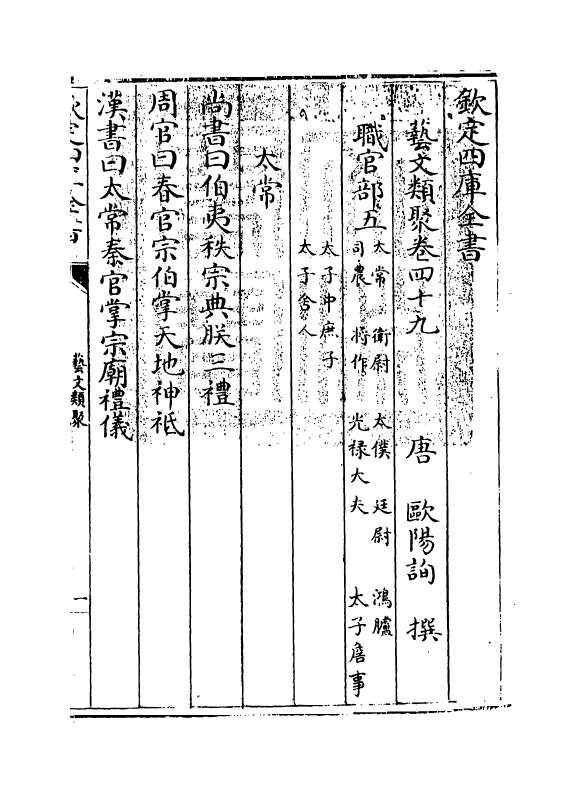 欽定四庫全書
藝文類聚卷四十九
唐 歐陽詢 撰
職官部五
太常 衛尉 太僕 廷尉 鴻臚
司農 將作 光禄大夫 太子詹事
太子中庶子
太子舍人
太常
尚書曰伯夷秩宗典朕三禮
周官曰春官宗伯掌天地神祗
漢書曰太常秦官掌宗廟禮儀
欽定四庫全書
藝文類聚
一